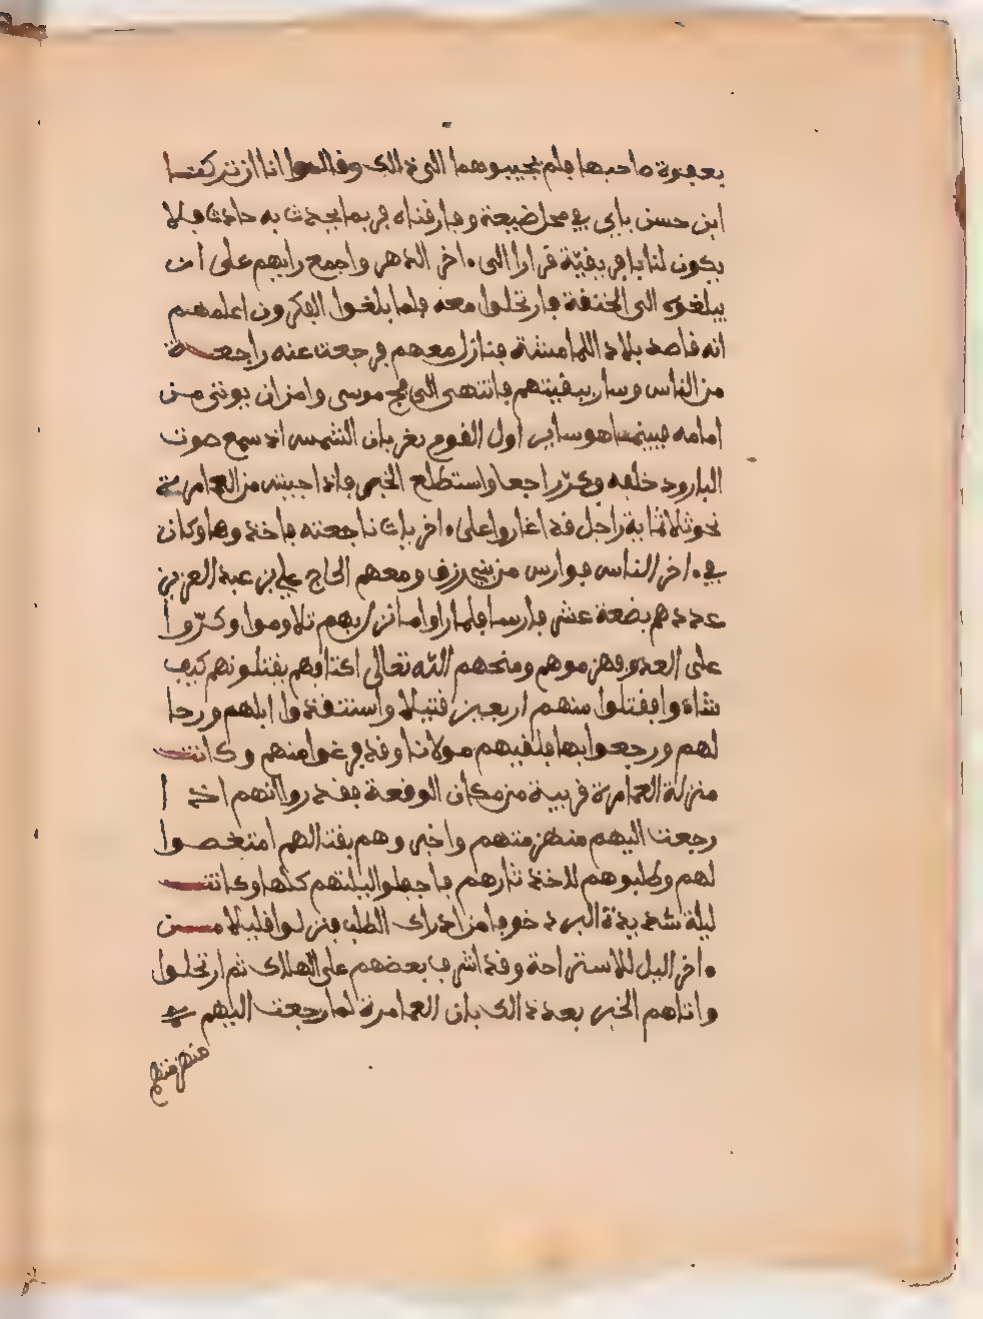 بعقوة صاحبها فلم يجيبوهما الى ذالك وقالوا انا ان تركنا
ابن حسن باي في محل ضيعة وفارقناه فربما يحدث به حادث فلا
يكون لنا بافريقيّة قرارا الى ءاخر الدهر واجمع رايهم على ان
يبلغوه الى الخنفة فارتحلوا معه فلما بلغوا الفكرون اعلمهم
انه قاصد بلاد اللمامشة فنازل معهم فرجعت عنه راجعة
من الناس وسار ببقيتهم فانتهى الى فج موسى وامن ان يوتى من
امامه فبينما هو ساير اول القوم بغربان الشمس اذ سمع صوت
البارود خلفه وكرّ راجعا واستطلع الخبر فاذا جيش من العمامرة
نحو ثلاثماية راجل قد اغاروا على ءاخر باث ناجعته فاخذوها وكان
في ءاخر الناس فوارس من بني رزف ومعهم الحاج علي بن عبد العزيز
عددهم بضعة عشر فارسا فلما راوا ما نزل بهم تلاوموا وكرّوا
على العدو فهزموهم ومنحهم الله تعالى اكتافهم يقتلونهم كيف
شاءوا فقتلوا منهم اربعين قتيلا واستنقذوا ابلهم ورحا
لهم ورجعوا بها فلقيهم مولانا وقد فرغوا منهم وكانت
منزلة العمامرة قريبة من مكان الوقعة فقدروا انهم اذا
رجعت اليهم منهزمتهم واخبروهم بقتالهم امتغصوا
لهم وطلبوهم للاخذ بثارهم فاجفلوا ليلتهم كلها وكانت
ليلة شديدة البرد خوفا من ادراك الطلب فنزلوا قليلا من
ءاخر اليل للاستراحة وقد اشرف بعضهم على الهلاك ثم ارتحلوا
واتاهم الخبر بعد ذالك بان العمامرة لما رجعت اليهم
منهزمتهم